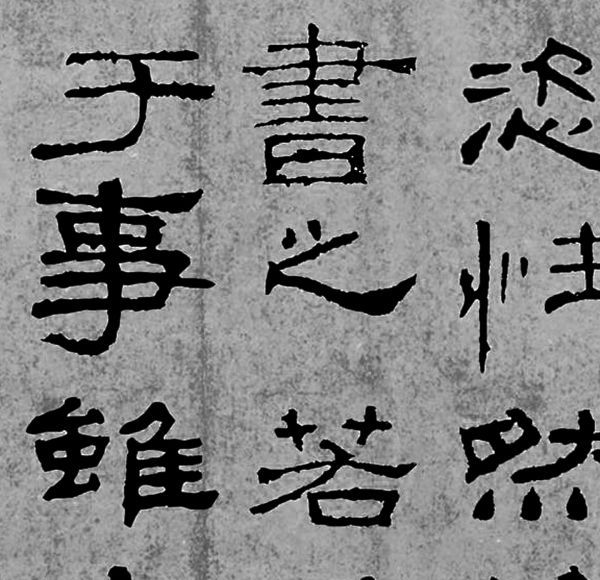 恣性然
書之若
于事雖